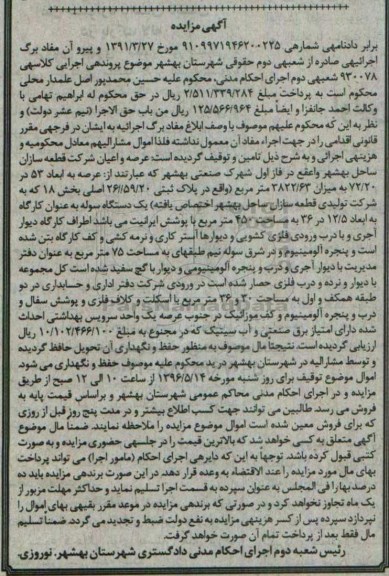 آگهی مزایده
برابر دادنامهی شمارهی ۹۱۰۹۹۷۱۹۴۶۲۰۰۲۲۵ مورخ ۱۳۹۱/۳/۲۷ و پیرو آن مفاد برگ
اجرائیهی صادره از شعبهی دوم حقوقی شهرستان بهشهر موضوع پروندهی اجرایی کلاسهی
۹۳۰۰۷۸ شعبهی دوم اجرای احکام مدنی، محکوم علیه حسین محمدپور اصل علمدار محلی
محکوم است به پرداخت مبلغ ۲/۵۱۱/۳۳۹/۲۸۴ ریال در حق محکوم له ابراهیم تهامی با
وکالت احمد جانفزا و ایضاً مبلغ ۱۲۵/۵۶۶/۹۶۴ ریال من باب حق الاجرا (نیم عشر دولت) و
نظر به این که محکوم علیهم موصوف با وصف ابلاغ مفاد برگ اجرائیه به ایشان در فرجهی مقرر
قانونی اقدامی را در جهت اجراء مفاد آن معمول نداشته فلذا اموال مشارالیهم معادل محکومبه و
هزینهی اجرائی و به شرح ذیل تامین و توقیف گردیده است: عرصه و اعیان شرکت قطعه سازان
ساحل بهشهر واقع در فاز اول شهرک صنعتی بهشهر که عبارتند از: عرصه به ابعاد ۵۳ در
۷۲/۲۰ به میزان ۳۸۲۲/۶۳ متر مربع (واقع در پلاک ثبتی ۲۶/۵۹/۲۰ اصلی بخش ۱۸ که به
شرکت تولیدی قطعه سازان ساحل بهشهر اختصاص یافته) یک دستگاه سوله به عنوان کارگاه
به ابعاد ۱۲/۵ در ۳۶ به مساحت ۴۵۰ متر مربع با پوشش ایرانیت می باشد اطراف کارگاه دیوار
آجری و با درب ورودی فلزی کشویی و دیوارها آستر کاری و نرمه کشی و کف کارگاه بتن شده
است و پنجره آلومینیوم و در شرق سوله نیم طبقهای به مساحت ۷۵ متر مربع به عنوان دفتر
مدیریت با دیوار آجری و درب و پنجره آلومینیومی و دیوار با گچ سفید شده است کل مجموعه
با دیوار و نرده و درب فلزی حصار شده است در ورودی شرکت دفتر اداری و حسابداری در دو
طبقه همکف و اول به مساحت ۳۰ و ۳۶ متر مربع با اسکلت و کلاف فلزی و پوشش سفال و
درب و پنجره آلومینیوم و کف موزائیک در جنوب عرصه یک واحد سرویس بهداشتی احداث
شده دارای امتیاز برق صنعتی و آب سپتیک که در مجموع به مبلغ ۱۰/۱۰۲/۴۶۶/۱۰۰ ریال
ارزیابی گردیده است. نتیجتاً مال موصوف به منظور حفظ و نگهداری آن تحویل حافظ گردیده
و توسط مشارالیه در شهرستان بهشهر در ید محکوم علیه موصوف حفظ و نگهداری می شود.
اموال موضوع توقیف برای روز شنبه مورخه ۱۳۹۶/۵/۱۴ از ساعت ۱۰ الی ۱۲ صبح از طریق
مزایده و در اجرای احکام مدنی محاکم عمومی شهرستان بهشهر و براساس قیمت پایه به
فروش می رسد. طالبین می توانند جهت کسب اطلاع بیشتر و در مدت پنج روز قبل از روزی
که برای فروش معین شده است اموال موضوع مزایده را ملاحظه نمایند. ضمناً مال موضوع
آگهی متعلق به کسی خواهد شد که بالاترین قیمت را در جلسهی حضوری مزایده و به صورت
کتبی قبول کرده باشد. توجهاً به این که دایرهی اجرای احکام (مامور اجرا) می تواند پرداخت
بهای مال مورد مزایده را عند الاقتضاء به وعده قرار دهد. در این صورت برندهی مزایده باید ده
درصد بها را فی المجلس به عنوان سپرده به قسمت اجرا تسلیم نماید و حداکثر مهلت مزبور از
یک ماه تجاوز نخواهد کرد و در صورتی که برندهی مزایده در موعد مقرر بقیهی بهای اموال را
نپردازد سپرده پس از کسر هزینهی مزایده به نفع دولت ضبط و تجدید می گردد. ضمناً تسلیم
مال فقط بعد از پرداخت تمام آن صورت خواهد گرفت.
رئیس شعبه دوم اجرای احکام مدنی دادگستری شهرستان بهشهر. نوروزی.